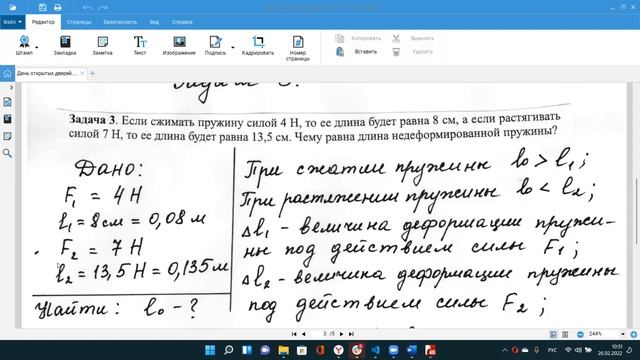 Файл
Редактор
Страницы
Безопасность
Вид
Справка
Штамп
Закладка
Заметка
Текст
Изображение
Подпись
Кадрировать
Номер страницы
Копировать
Вырезать
Вставить
Удалить
День открытых дверей....
Задача 3. Если сжимать пружину силой 4 Н, то ее длина будет равна 8 см, а если растягивать
силой 7 Н, то ее длина будет равна 13,5 см. Чему равна длина недеформированной пружины?
Дано:
F₁ = 4 Н
l₁ = 8 см = 0,08 м
F₂ = 7 Н
l₂ = 13,5 Н = 0,135 м
Найти: l₀ - ?
При сжатии пружины l₀ > l₁;
При растяжении пружины l₀ < l₂;
Δl₁ - величина деформации пружи-
ны под действием силы F₁;
Δl₂ - величина деформации пружины
под действием силы F₂;
3 /5
244%
РУС
10:51
26.02.2022